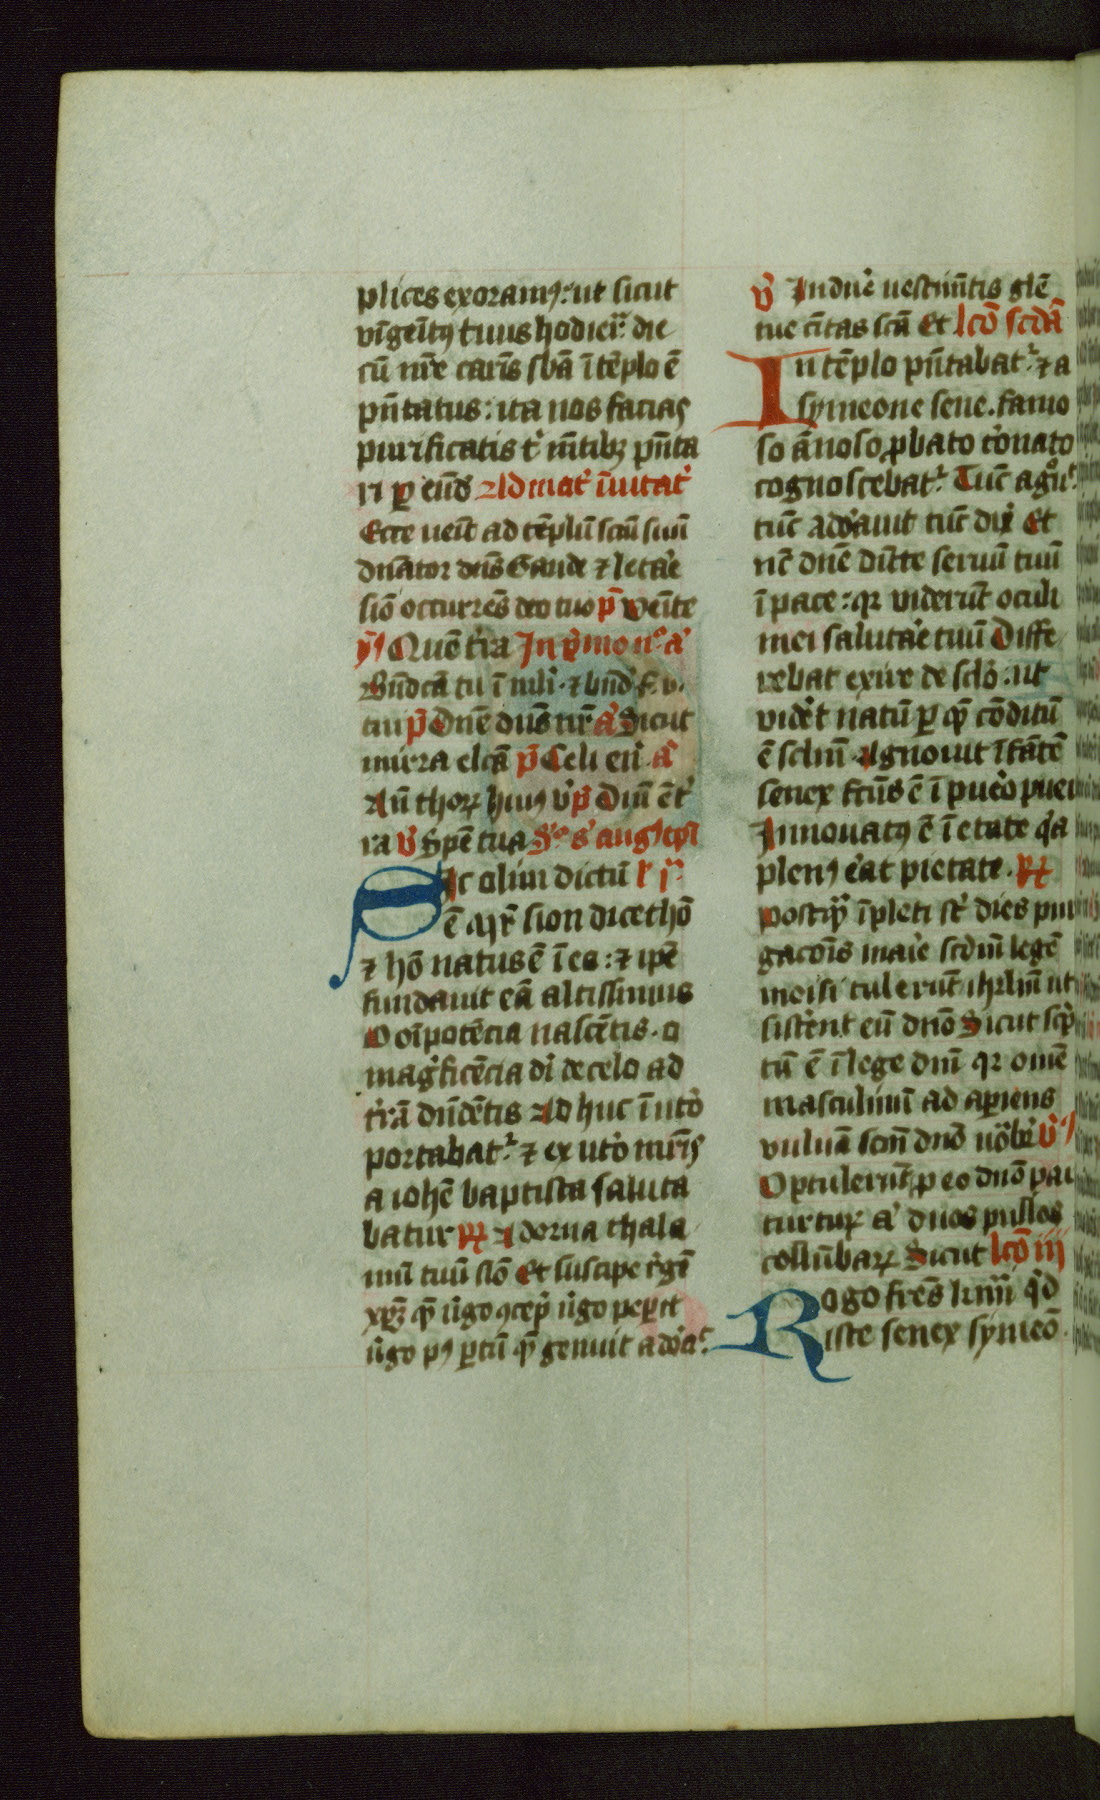 plices exoramꝰ: ut sicut
vīgeītꝰ tuus hodier̄ die
cū nr̄e carīs sb̄a ī tēplo ē
pn̄tatus: ita nos facias
purificatis t' mn̄tibꝫ pn̄ta
ri ꝑ eūd Ad mat' īuitat'
Ecce ueīt ad tēplū scm̄ suū
dnātor dn̄s Gaude ⁊ letare
siō occurrēs deo tuo p̄ Veīte
Quē t'ra In p'mo n° a'
Bn̄dcā tu ī mlī ⁊ bn̄d' f. v.
tui p̄ Dn̄e dn̄s nr̄ a' Sicut
mirra elcā p̄ Celi en̄ a'
An̄ thorꝝ huiꝰ v'p̄ Dn̄i ēt'
ra V' Spē tua S'o s' augꝰ epi
Sic olim dictū l' j
ē qr̄ sion dicet hō
⁊ hō natus ē ī ea: ⁊ ip̄e
fundauit eā altissimus
O oīpotēcia nascētis. o
mag'ficēcia di' de celo ad
t'rā dn̄dētis Adhuc ī ut'o
portabat' ⁊ ex ut'o mr̄is
a iohē baptista saluta
batur R Adorna thala
mū tuū siō Et suscipe r'gē
xp̄m q̄ u'go ꝯcep' u'go peperit
u'go pꝰ ꝑtū q̄ genuit adorat'
V' Indue uestim̄tis glē
tue c'itas scā Et lcō scdā
In tēplo pn̄tabat' ⁊ a
symeone sene. famo
so ānoso ꝓbato cōnato
cognoscebat' Tūc agn'
tūc adorauit tūc dix' Et
nc̄ dn̄e dītte seruū tuū
ī pace: qr uiderūt oculi
mei salutare tuū Diffe
rebat exire de sc'lo: ut
videt natū ꝑ q̄ cōditū
ē sclm̄ Agnouit īfātē
senex fc̄us ē ī puero puer
Innouatꝰ ē ī etate q'a
plenꝰ erat pietate. R
Postq̄ īpleti st' dies pur
gacōis marie scdm̄ legē
moisi tulerūt ihrlm̄ ut
sistēnt eū dn̄o Sicut sc'p
tū ē ī lege dn̄i qr omē
masculinū adaperiens
vuluā scm̄ dn̄o uōbr' V'
Optulerūt ꝓ eo dn̄o par
turturꝝ a' duos pullos
collūbaꝝ Sicut lcō iij
Rogo fr̄es kmī q'd
iste senex symeō